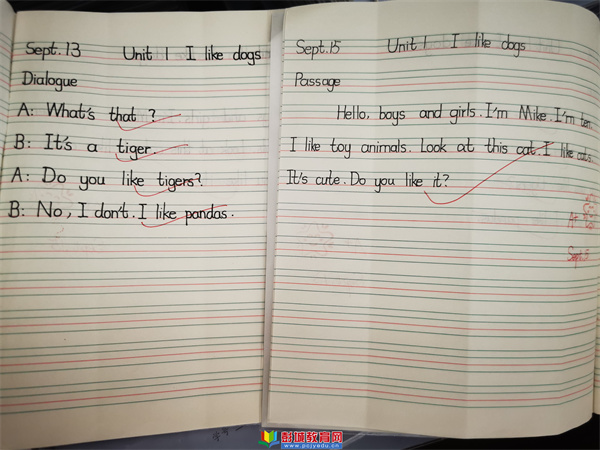 Sept.13 Unit 1 I like dogs
Dialogue
A: What's that ?
B: It's a tiger.
A: Do you like tigers?
B: No, I don't. I like pandas.
Sept.15 Unit 1 I like dogs
Passage
Hello, boys and girls. I'm Mike. I'm ten.
I like toy animals. Look at this cat. I like cats.
It's cute. Do you like it?
A+
Sept.
彭城教育网
www.pcjyedu.cn